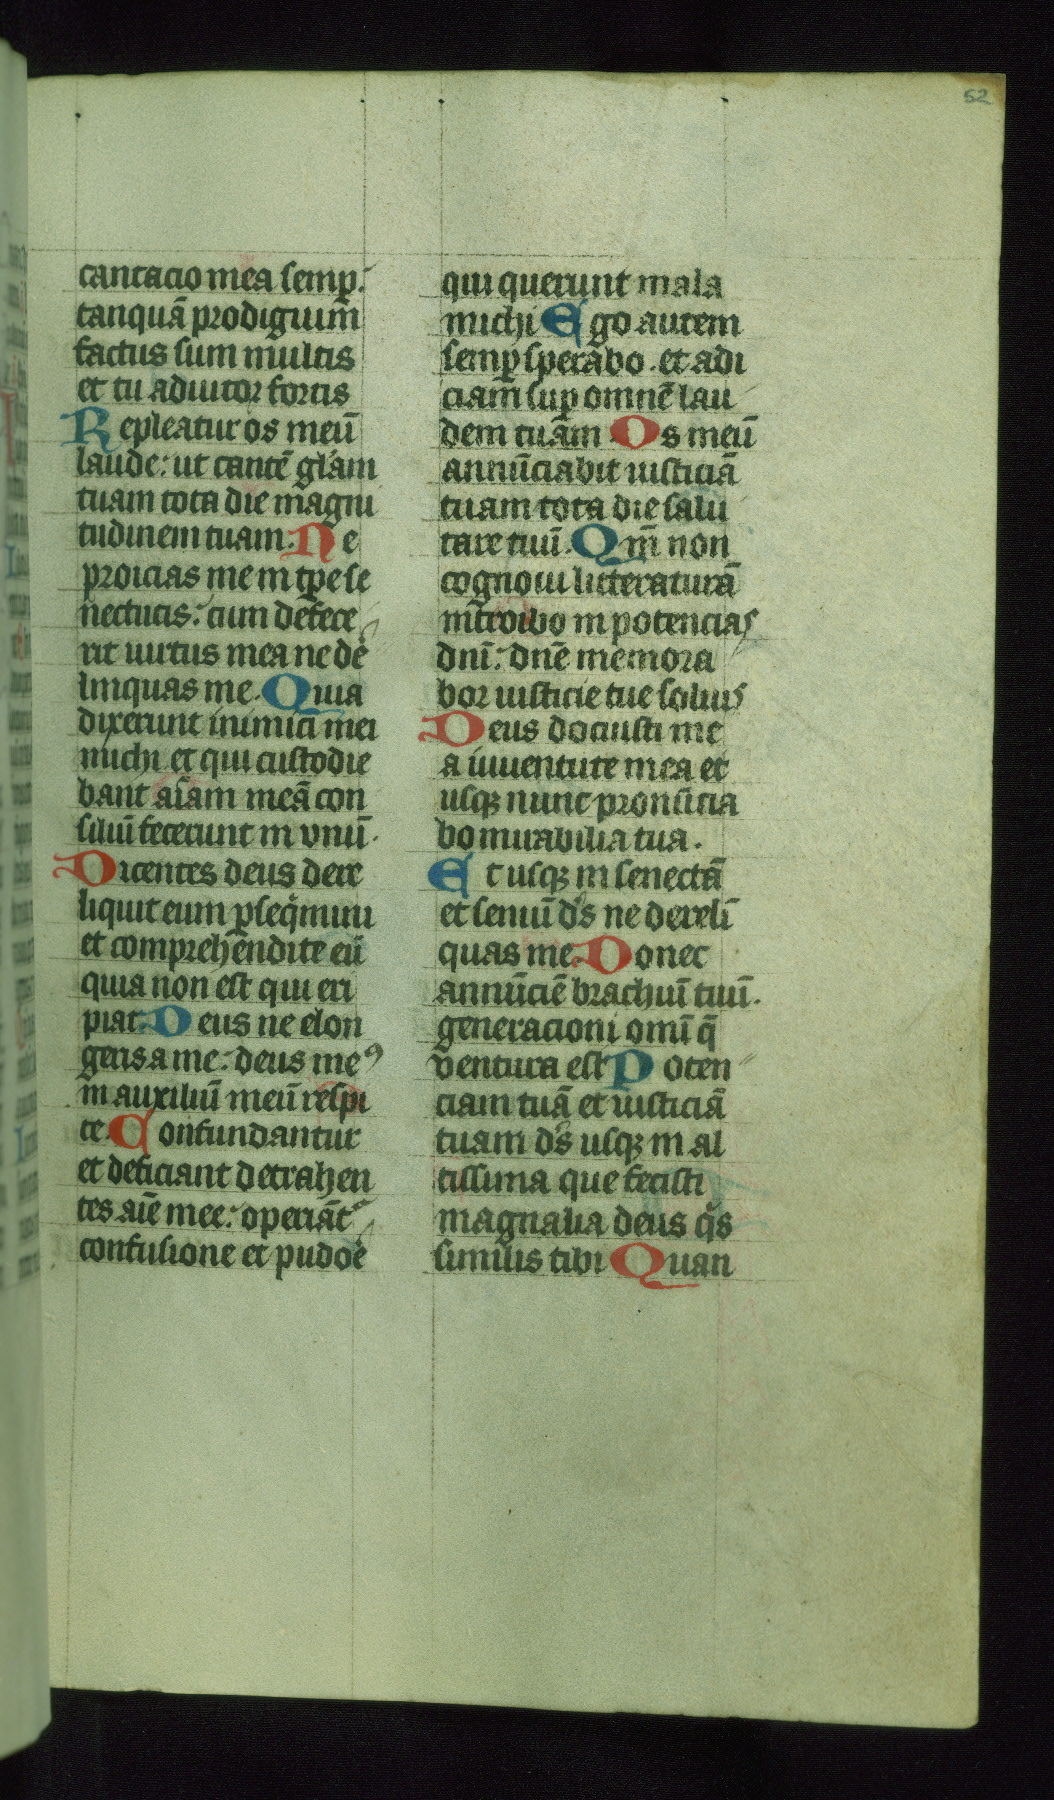 52
cantacio mea semp̱:
tanquā prodigium
factus sum multis
et tu adiutor fortis
Repleatur os meū
laude: ut cantē gl̄am
tuam tota die magni
tudinem tuam. Ne
proicias me in tp̄e se
nectutis: cum defece
rit uirtus mea ne de
linquas me. Quia
dixerunt inimici mei
michi et qui custodie
bant aīam meā con
siliū fecerunt in vnū.
Dicentes deus dere
liquit eum p̱seq̄mini
et comprehendite eū
quia non est qui eri
piat. Deus ne elon
geris a me: deus meꝰ
in auxiliū meū respi
ce. Confundantur
et deficiant detrahen
tes aīe mee: operiāt᷑
confusione et pudoē
qui querunt mala
michi Ego autem
semp̱ sperabo. et adi
ciam sup̱ omnē lau
dem tuam. Os meū
annūciabit iusticiā
tuam tota die salu
tare tuū. Qm̄ non
cognoui litteraturā
int̄roibo in potencias
dnī: dn̄e memora
bor iusticie tue solius
Deus docuisti me
a iuuentute mea et
usqꝫ nunc pronūcia
bo mirabilia tua.
Et usqꝫ in senectā
et seniū ds̄ ne derelī
quas me. Donec
annūciē brachiū tuū.
generacioni omī q̄
ventura est Poten
ciam tuā et iusticiā
tuam ds̄ usqꝫ in al
tissima que fecisti
magnalia deus qͥs
similis tibi Quan